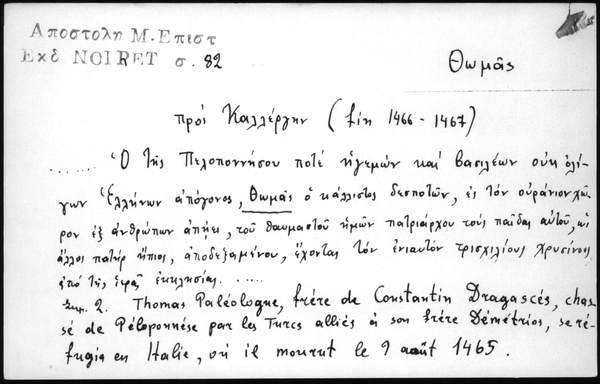 Αποστολη Μ. Επιστ
Εκδ NOIRET σ. 82
Θωμᾶς
πρὸς Καλλέργην (fin 1466 - 1467)
....... Ὁ τῆς Πελοποννήσου ποτέ ἡγεμών καί βασιλέων οὐκ ὀλί-
γων Ἑλλήνων ἀπόγονος, Θωμᾶς ὁ κάλλιστος δεσποτῶν, ἐς τόν οὐράνιον χῶ-
ρον ἐξ ἀνθρώπων ἀπῄει, τοῦ θαυμαστοῦ ἡμῶν πατριάρχου τούς παῖδας αὐτοῦ,
ἄλλοι πατήρ ἤπιος, ἀποδεξαμένου, ἔχοντας τόν ἐνιαυτόν τρισχιλίους χρυσίνους
ἀπό τῆς ἱερᾶς ἐκκλησίας. .....
Σημ. 2. Thomas Paléologue, frére de Constantin Dragascés, chas-
sé de Péloponnése par les Turcs alliés á son frére Démétrios, se ré-
fugia en Italie, oú il mourut le 9 août 1465.